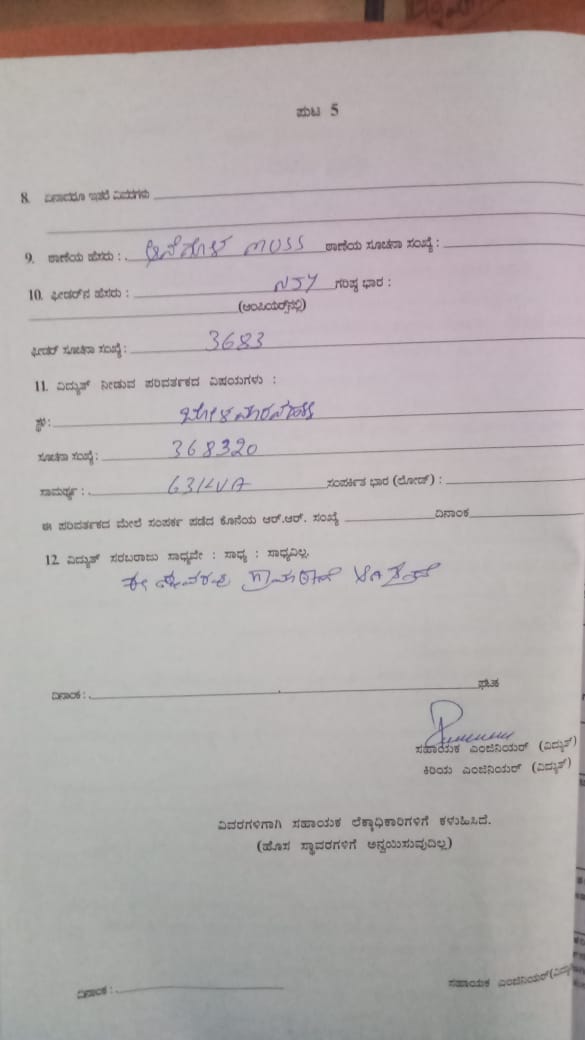 ಪುಟ 5
8. ಏನಾದರೂ ಇತರೆ ವಿವರಗಳು
9. ಠಾಣೆಯ ಹೆಸರು : MUSS ಠಾಣೆಯ ಸೂಚನಾ ಸಂಖ್ಯೆ :
10. ಫೀಡರ್‌ನ ಹೆಸರು : NJY ಗರಿಷ್ಠ ಭಾರ :
(ಆಂಪಿಯರ್‍ಸ್‌ನಲ್ಲಿ)
ಫೀಡರ್ ಸೂಚನಾ ಸಂಖ್ಯೆ : 3683
11. ವಿದ್ಯುತ್ ನೀಡುವ ಪರಿವರ್ತಕದ ವಿಷಯಗಳು :
ಸ್ಥಳ :
ಸೂಚನಾ ಸಂಖ್ಯೆ : 368320
ಸಾಮರ್ಥ್ಯ : 63KVA ಸಂಪರ್ಕಿತ ಭಾರ (ಲೋಡ್) :
ಈ ಪರಿವರ್ತಕದ ಮೇಲೆ ಸಂಪರ್ಕ ಪಡೆದ ಕೊನೆಯ ಆರ್.ಆರ್. ಸಂಖ್ಯೆ ದಿನಾಂಕ
12. ವಿದ್ಯುತ್ ಸರಬರಾಜು ಸಾಧ್ಯವೇ : ಸಾಧ್ಯ : ಸಾಧ್ಯವಿಲ್ಲ.
ದಿನಾಂಕ : ಘಟಕ
ಸಹಾಯಕ ಎಂಜಿನಿಯರ್ (ವಿದ್ಯುತ್)
ಕಿರಿಯ ಎಂಜಿನಿಯರ್ (ವಿದ್ಯುತ್)
ವಿವರಗಳಿಗಾಗಿ ಸಹಾಯಕ ಲೆಕ್ಕಾಧಿಕಾರಿಗಳಿಗೆ ಕಳುಹಿಸಿದೆ.
(ಹೊಸ ಸ್ಥಾವರಗಳಿಗೆ ಅನ್ವಯಿಸುವುದಿಲ್ಲ)
ದಿನಾಂಕ : ಸಹಾಯಕ ಎಂಜಿನಿಯರ್ (ವಿದ್ಯು